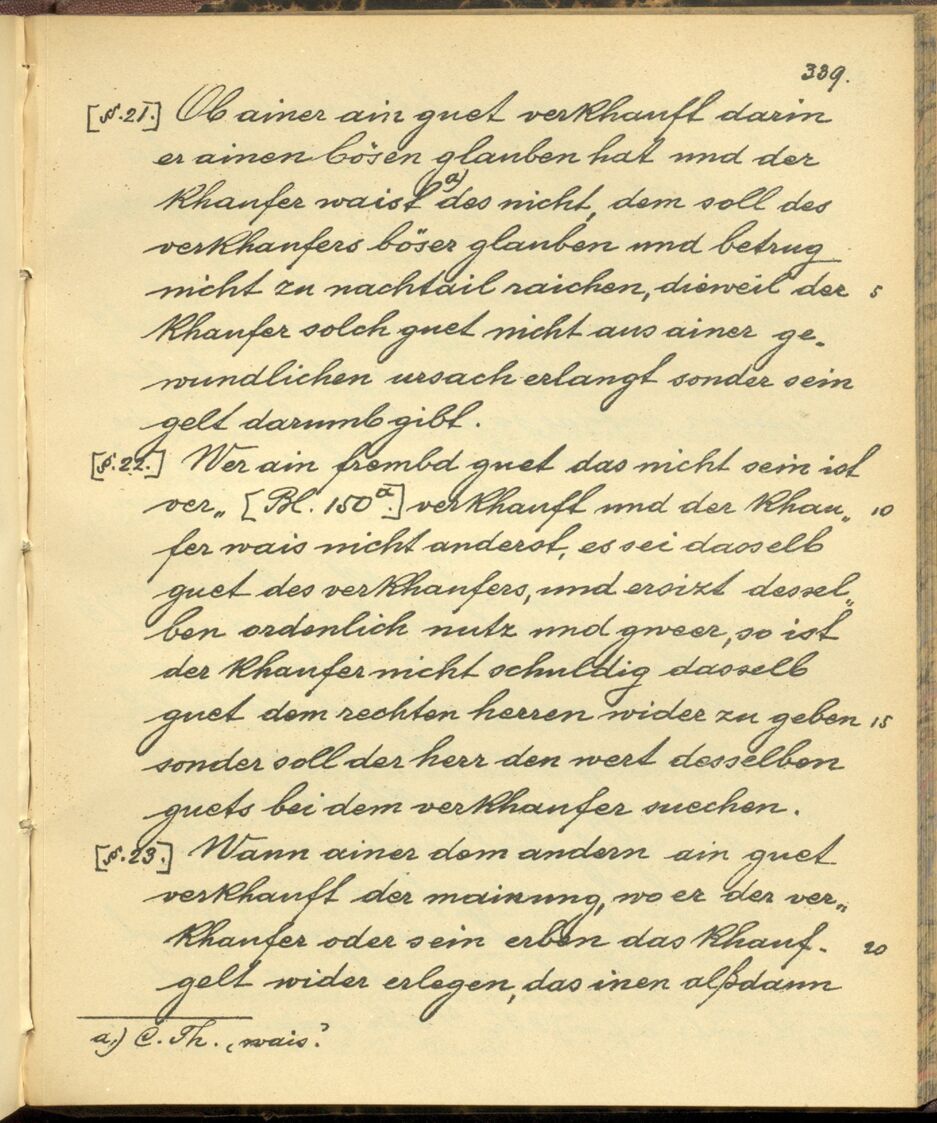 339.
[§.21.] Ob ainer ain guet verkhauft darin
er ainen bösen glauben hat und der
khaufer waist a) des nicht, dem soll des
verkhaufers böser glauben und betrug
nicht zu nachtail raichen, dieweil der 5
khaufer solch guet nicht aus ainer ge„
wundlichen ursach erlangt sonder sein
gelt darumb gibt.
[§.22.] Wer ain frembd guet das nicht sein ist
ver„ [Bl. 150a.] verkhauft und der khau„ 10
fer wais nicht anderst, es sei dasselb
guet des verkhaufers, und ersizt dessel„
ben ordenlich nutz und gweer, so ist
der khaufer nicht schuldig dasselb
guet dem rechten herren wider zu geben 15
sonder soll der herr den wert desselben
guets bei dem verkhaufer suechen.
[§.23.] Wann ainer dem andern ain guet
verkhauft der mainung, wo er der ver„
khaufer oder sein erben das khauf- 20
gelt wider erlegen, das inen alßdann
a.) C. Th. ‚wais‘.